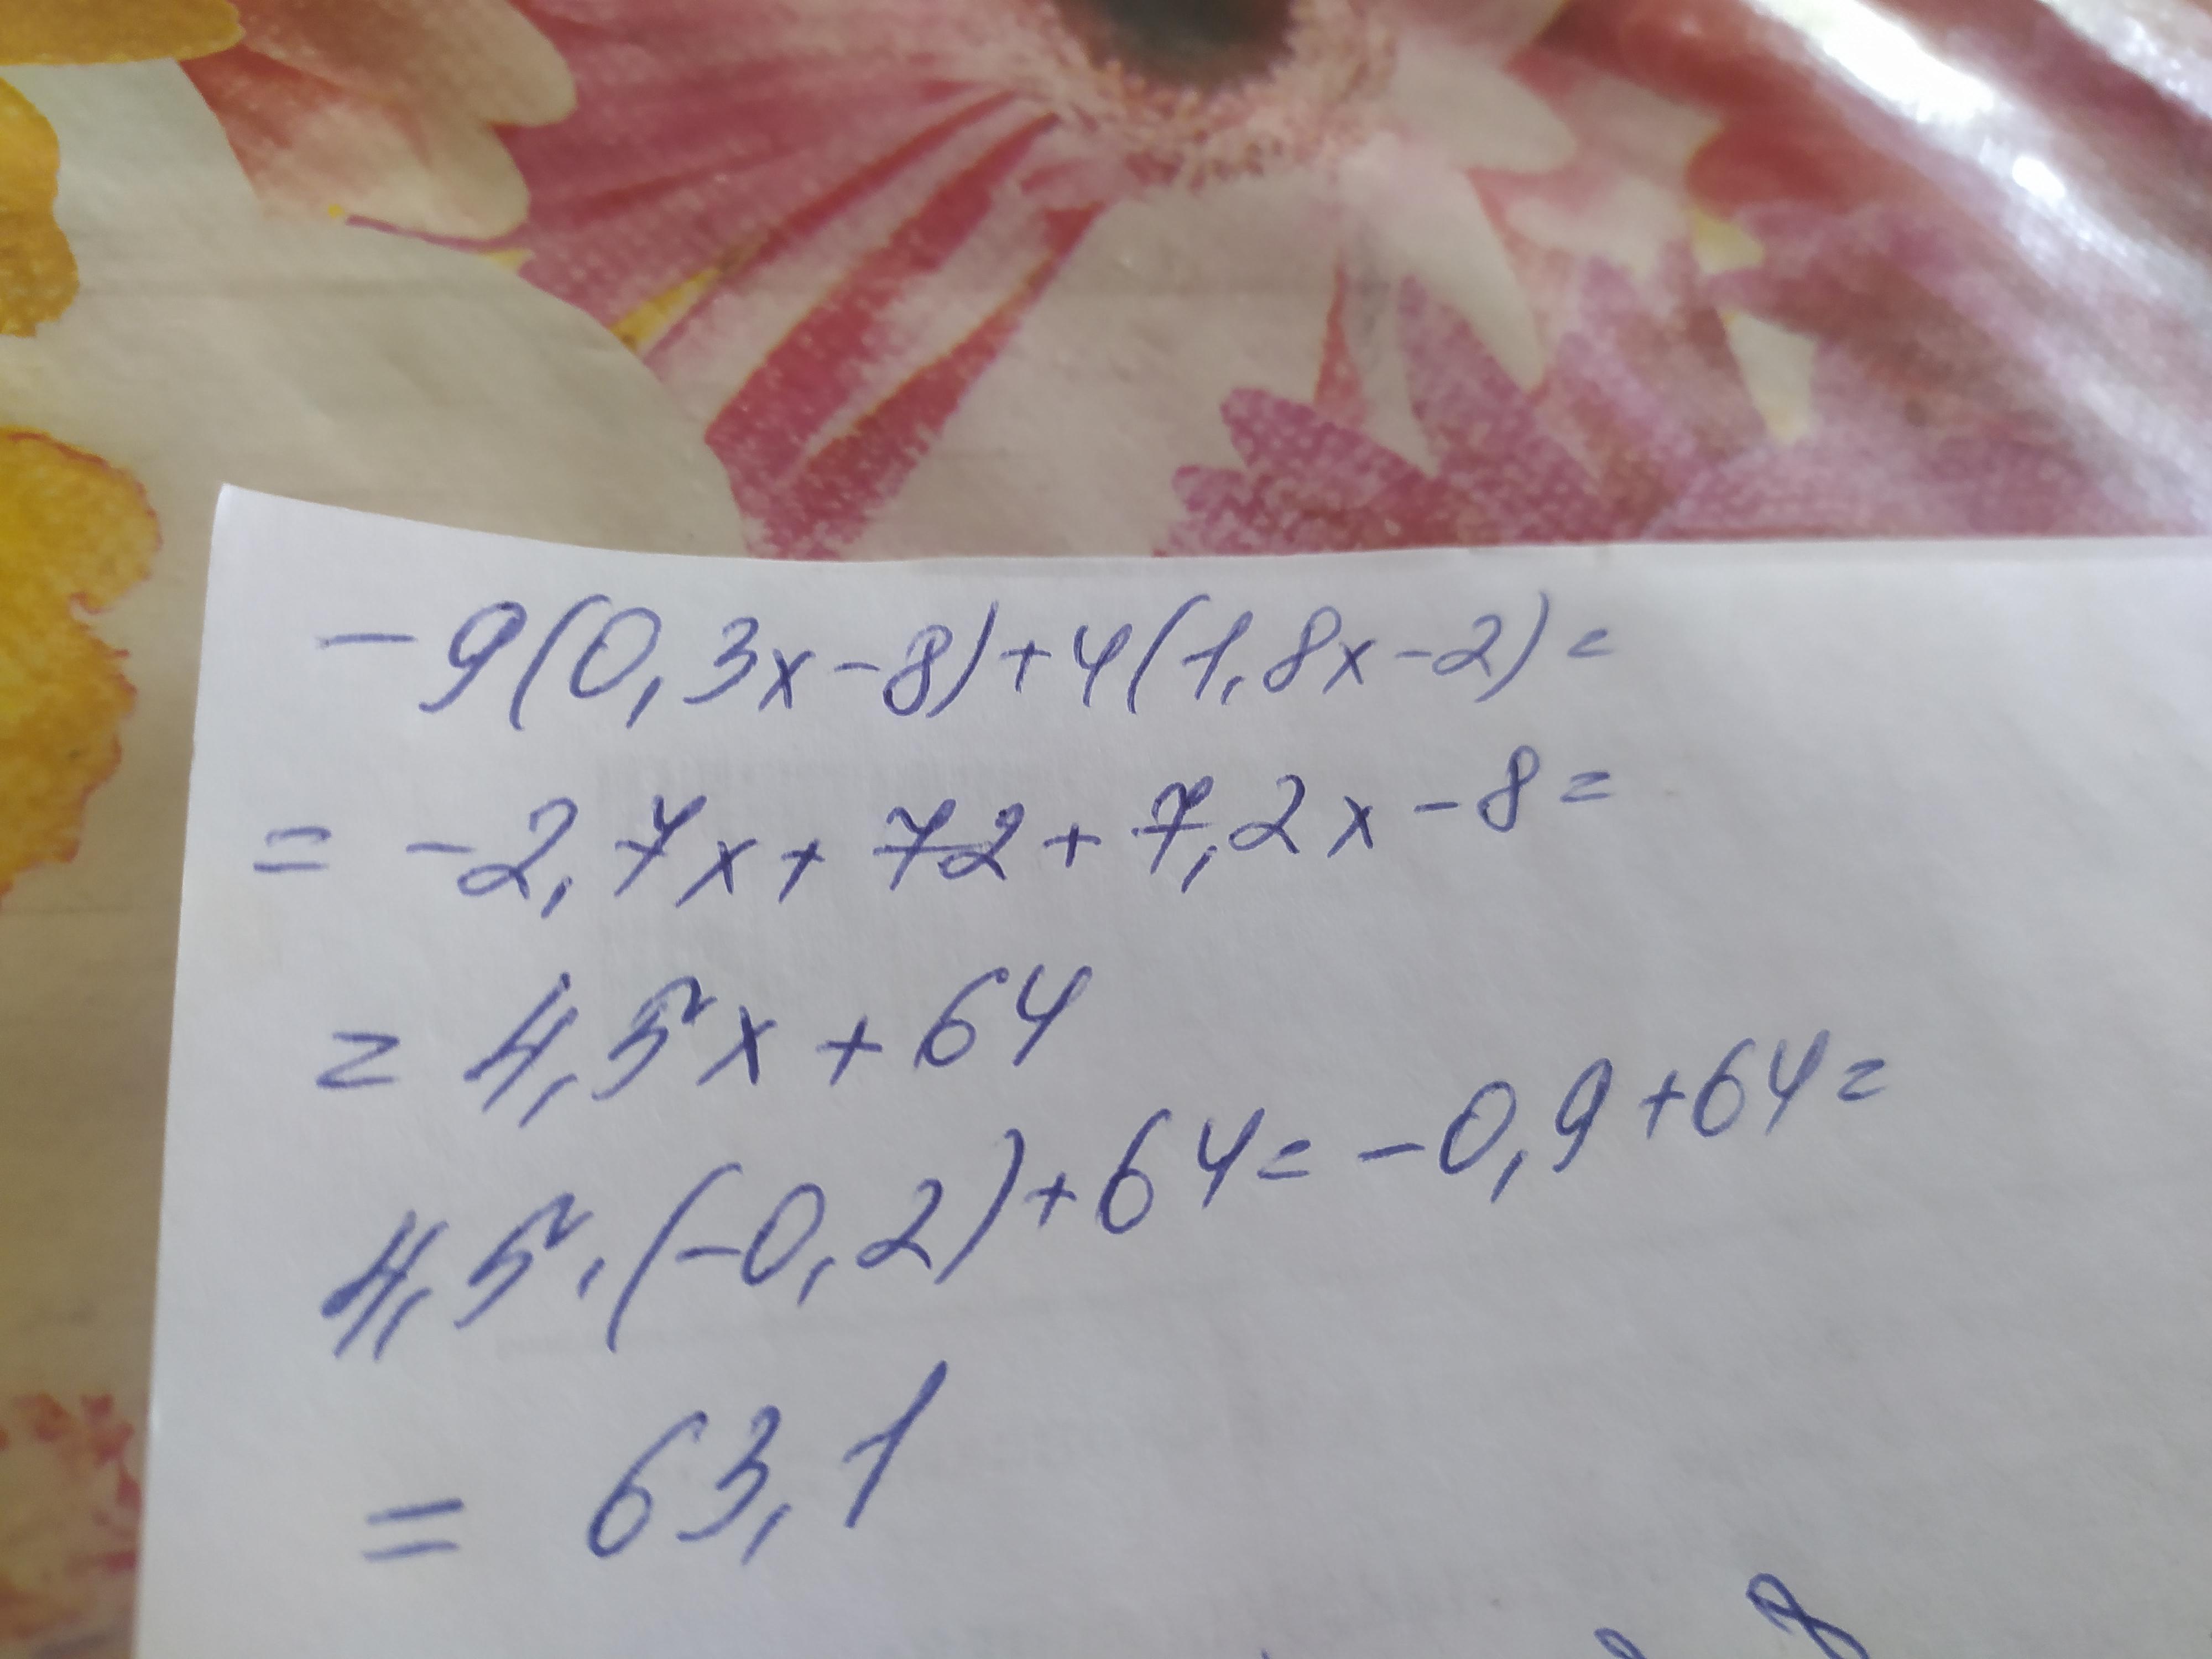 -9(0,3x-8)+4(1,8x-2)=
= -2,7x+72+7,2x-8=
= 4,5x+64
4,5·(-0,2)+64=-0,9+64=
= 63,1